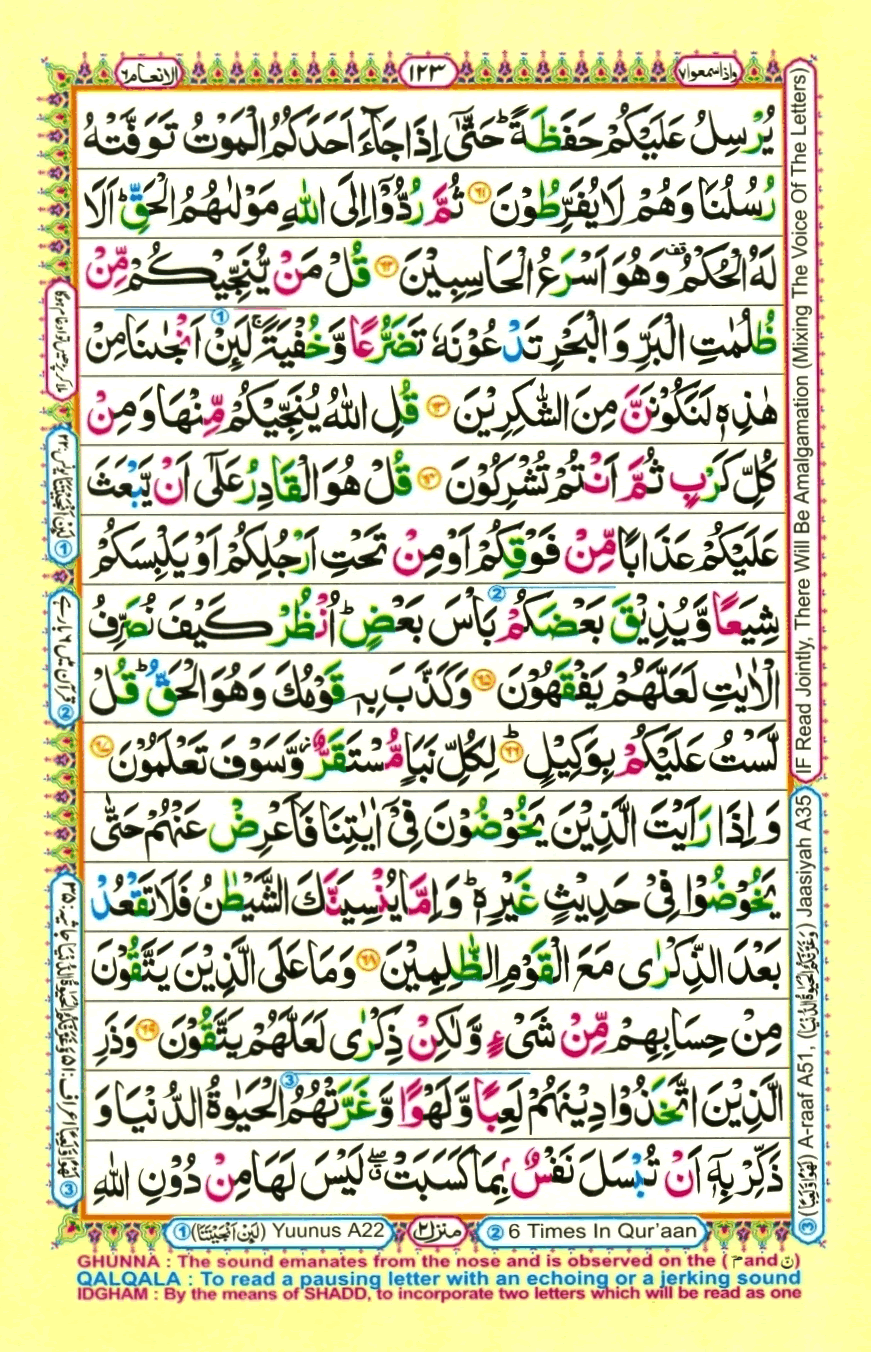 واذا سمعوا ٧
١٢٣
الانعام ٦
يُرْسِلُ عَلَيْكُمْ حَفَظَةً ؕ حَتّٰۤى اِذَا جَآءَ اَحَدَكُمُ الْمَوْتُ تَوَفَّتْهُ
رُسُلُنَا وَهُمْ لَا يُفَرِّطُوْنَ ۝٦١ ثُمَّ رُدُّوْۤا اِلَى اللّٰهِ مَوْلٰىهُمُ الْحَقِّ ؕ اَلَا
لَهُ الْحُكْمُ ۫ وَهُوَ اَسْرَعُ الْحَاسِبِيْنَ ۝٦٢ قُلْ مَنْ يُّنَجِّيْكُمْ مِّنْ
ظُلُمٰتِ الْبَرِّ وَالْبَحْرِ تَدْعُوْنَهٗ تَضَرُّعًا وَّخُفْيَةً ۚ لَىِٕنْ اَنْجٰىنَا مِنْ
هٰذِهٖ لَنَكُوْنَنَّ مِنَ الشّٰكِرِيْنَ ۝٦٣ قُلِ اللّٰهُ يُنَجِّيْكُمْ مِّنْهَا وَمِنْ
كُلِّ كَرْبٍ ثُمَّ اَنْتُمْ تُشْرِكُوْنَ ۝٦٤ قُلْ هُوَ الْقَادِرُ عَلٰۤى اَنْ يَّبْعَثَ
عَلَيْكُمْ عَذَابًا مِّنْ فَوْقِكُمْ اَوْ مِنْ تَحْتِ اَرْجُلِكُمْ اَوْ يَلْبِسَكُمْ
شِيَعًا وَّيُذِيْقَ بَعْضَكُمْ بَاْسَ بَعْضٍ ؕ اُنْظُرْ كَيْفَ نُصَرِّفُ
الْاٰيٰتِ لَعَلَّهُمْ يَفْقَهُوْنَ ۝٦٥ وَكَذَّبَ بِهٖ قَوْمُكَ وَهُوَ الْحَقُّ ؕ قُلْ
لَّسْتُ عَلَيْكُمْ بِوَكِيْلٍ ۝٦٦ لِكُلِّ نَبَاٍ مُّسْتَقَرٌّ ؗ وَّسَوْفَ تَعْلَمُوْنَ ۝٦٧
وَاِذَا رَاَيْتَ الَّذِيْنَ يَخُوْضُوْنَ فِيْۤ اٰيٰتِنَا فَاَعْرِضْ عَنْهُمْ حَتّٰى
يَخُوْضُوْا فِيْ حَدِيْثٍ غَيْرِهٖ ؕ وَاِمَّا يُنْسِيَنَّكَ الشَّيْطٰنُ فَلَا تَقْعُدْ
بَعْدَ الذِّكْرٰى مَعَ الْقَوْمِ الظّٰلِمِيْنَ ۝٦٨ وَمَا عَلَى الَّذِيْنَ يَتَّقُوْنَ
مِنْ حِسَابِهِمْ مِّنْ شَيْءٍ وَّلٰكِنْ ذِكْرٰى لَعَلَّهُمْ يَتَّقُوْنَ ۝٦٩ وَذَرِ
الَّذِيْنَ اتَّخَذُوْا دِيْنَهُمْ لَعِبًا وَّلَهْوًا وَّغَرَّتْهُمُ الْحَيٰوةُ الدُّنْيَا وَ
ذَكِّرْ بِهٖۤ اَنْ تُبْسَلَ نَفْسٌۢ بِمَا كَسَبَتْ ۖۗ لَيْسَ لَهَا مِنْ دُوْنِ اللّٰهِ
IF Read Jointly, There Will Be Amalgamation (Mixing The Voice Of The Letters)
③ (لَهْوًا وَّلَعِبًا) A-raaf A51, (وَغَرَّتْكُمُ الْحَيٰوةُ الدُّنْيَا) Jaasiyah A35
① لَىِٕنْ اَنْجَيْتَنَا یونس: ٢٢
② قرآن میں ٦ بار ہے
③ لَهْوًا وَّلَعِبًا اعراف: ٥١ وَغَرَّتْكُمُ الْحَيٰوةُ الدُّنْيَا جاثیہ: ٣٥
① (لَىِٕنْ اَنْجَيْتَنَا) Yuunus A22
منزل ٢
② 6 Times In Qur'aan
GHUNNA : The sound emanates from the nose and is observed on the (مّ and نّ)
QALQALA : To read a pausing letter with an echoing or a jerking sound
IDGHAM : By the means of SHADD, to incorporate two letters which will be read as one